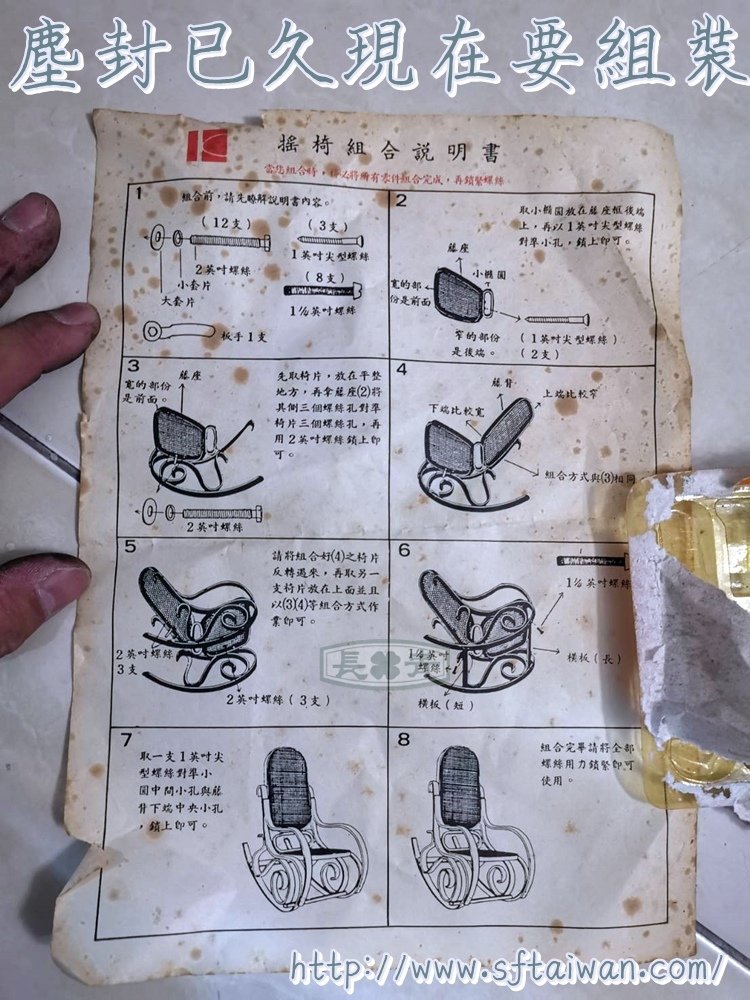 塵封已久現在要組裝
搖椅組合說明書
當您組合時，務必將所有零件組合完成，再鎖緊螺絲
1
組合前，請先瞭解說明書內容。
(12支)
(3支)
1英吋尖型螺絲
2英吋螺絲
(8支)
小套片
大套片
1½英吋螺絲
板手1支
2
取小橢圓放在藤座框後端
上，再以1英吋尖型螺絲
對準小孔，鎖上即可。
藤座
小橢圓
寬的部
份是前面
窄的部份
是後端。
(1英吋尖型螺絲)
(2支)
3
藤座
寬的部份
是前面。
先取椅片，放在平整
地方，再拿藤座(2)將
其側三個螺絲孔對準
椅片三個螺絲孔，再
用2英吋螺絲鎖上即
可。
2英吋螺絲
4
藤背
上端比較窄
下端比較寬
組合方式與(3)相同
5
請將組合好(4)之椅片
反轉過來，再取另一
支椅片放在上面並且
以(3)(4)等組合方式作
業即可。
2英吋螺絲
3支
2英吋螺絲(3支)
6
1½英吋螺絲
1½英吋
螺絲
橫板(長)
橫板(短)
長
7
取一支1英吋尖
型螺絲對準小
圓中間小孔與藤
背下端中央小孔
，鎖上即可。
8
組合完畢請將全部
螺絲用力鎖緊即可
使用。
http://www.sftaiwan.com/